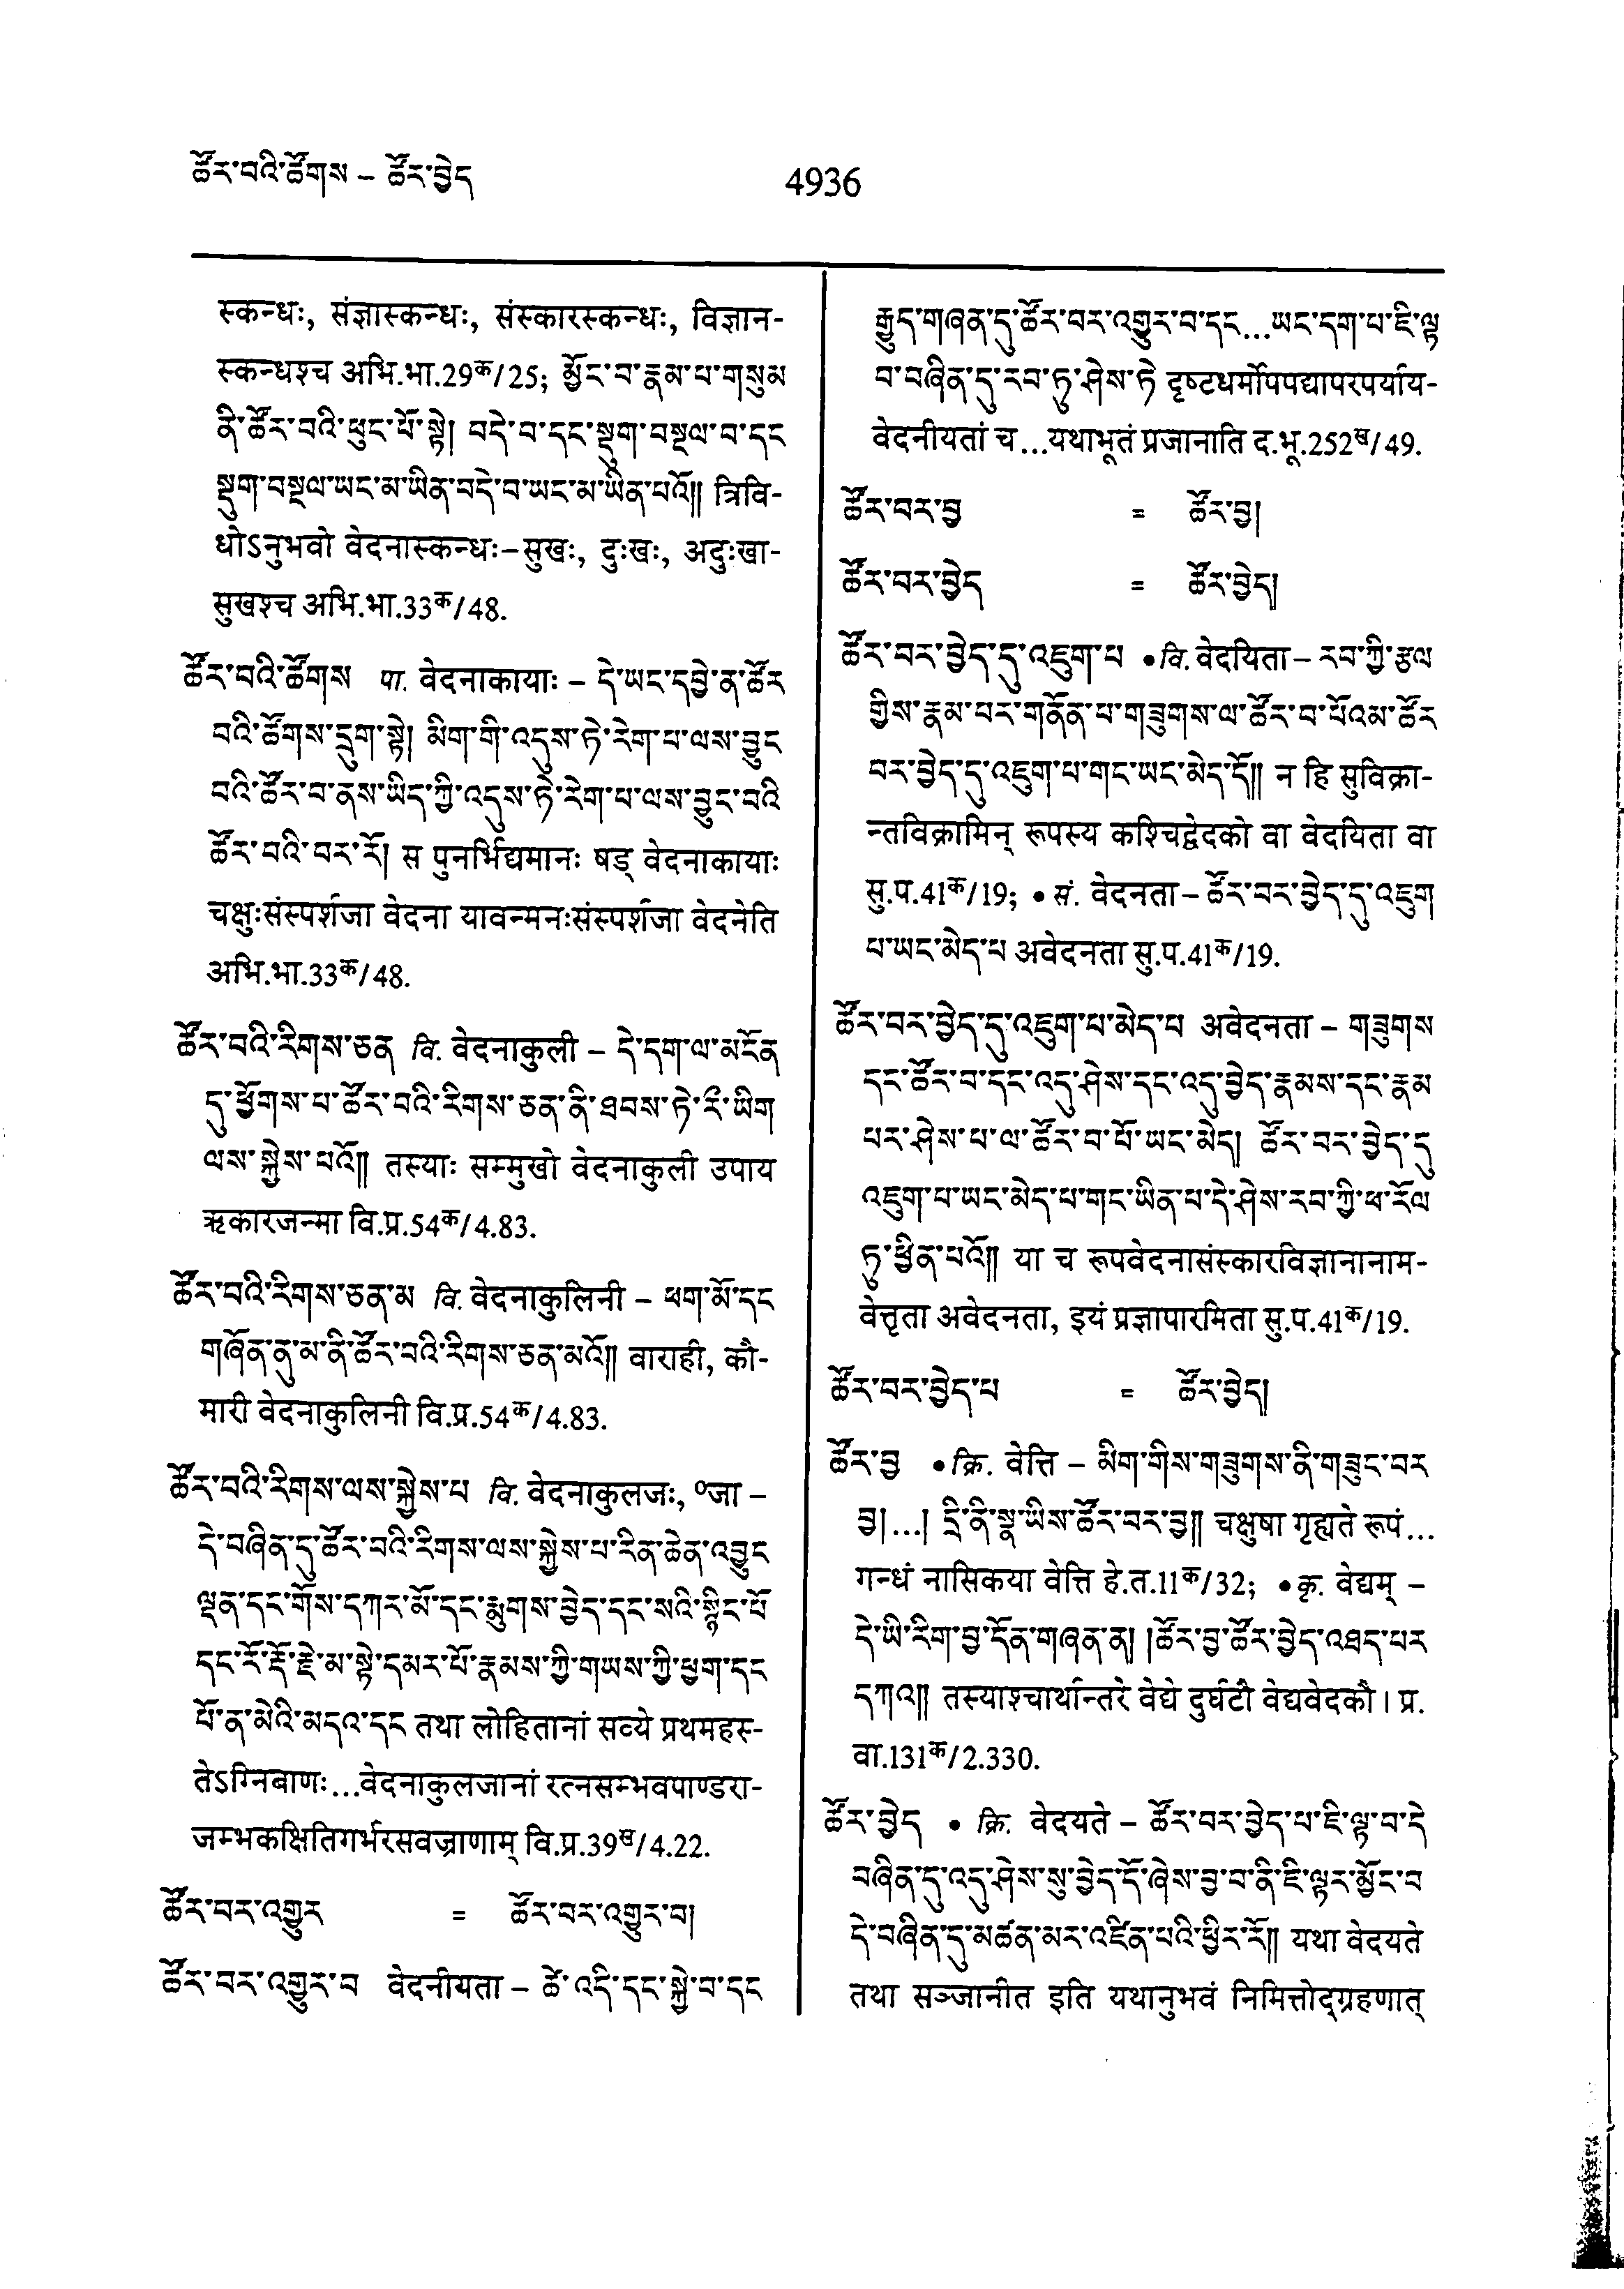 ཚོར་བའི་ཚོགས – ཚོར་བྱེད
4936
स्कन्धः, संज्ञास्कन्धः, संस्कारस्कन्धः, विज्ञान-
स्कन्धश्च अभि.भा.29क/25; མྱོང་བ་རྣམ་པ་གསུམ
ནི་ཚོར་བའི་ཕུང་པོ་སྟེ། བདེ་བ་དང་སྡུག་བསྔལ་བ་དང
སྡུག་བསྔལ་ཡང་མ་ཡིན་བདེ་བ་ཡང་མ་ཡིན་པའོ༎ त्रिवि-
धोऽनुभवो वेदनास्कन्धः–सुखः, दुःखः, अदुःखा-
सुखश्च अभि.भा.33क/48.
ཚོར་བའི་ཚོགས पा. वेदनाकायाः – དེ་ཡང་དབྱེ་ན་ཚོར
བའི་ཚོགས་དྲུག་སྟེ། མིག་གི་འདུས་ཏེ་རེག་པ་ལས་བྱུང
བའི་ཚོར་བ་ནས་ཡིད་ཀྱི་འདུས་ཏེ་རེག་པ་ལས་བྱུང་བའི
ཚོར་བའི་བར་རོ། स पुनर्भिद्यमानः षड् वेदनाकायाः
चक्षुःसंस्पर्शजा वेदना यावन्मनःसंस्पर्शजा वेदनेति
अभि.भा.33क/48.
ཚོར་བའི་རིགས་ཅན वि. वेदनाकुली – དེ་དག་ལ་མངོན
དུ་ཕྱོགས་པ་ཚོར་བའི་རིགས་ཅན་ནི་ཐབས་ཏེ་རྀ་ཡིག
ལས་སྐྱེས་པའོ༎ तस्याः सम्मुखो वेदनाकुली उपाय
ऋकारजन्मा वि.प्र.54क/4.83.
ཚོར་བའི་རིགས་ཅན་མ वि. वेदनाकुलिनी – ཕག་མོ་དང
གཞོན་ནུ་མ་ནི་ཚོར་བའི་རིགས་ཅན་མའོ༎ वाराही, कौ-
मारी वेदनाकुलिनी वि.प्र.54क/4.83.
ཚོར་བའི་རིགས་ལས་སྐྱེས་པ वि. वेदनाकुलजः, ०जा –
དེ་བཞིན་དུ་ཚོར་བའི་རིགས་ལས་སྐྱེས་པ་རིན་ཆེན་འབྱུང
ལྡན་དང་གོས་དཀར་མོ་དང་རྨུགས་བྱེད་དང་སའི་སྙིང་པོ
དང་རོ་རྡོ་རྗེ་མ་སྟེ་དམར་པོ་རྣམས་ཀྱི་གཡས་ཀྱི་ཕྱག་དང
པོ་ན་མེའི་མདའ་དང तथा लोहितानां सव्ये प्रथमहस्-
तेऽग्निबाणः...वेदनाकुलजानां रत्नसम्भवपाण्डरा-
जम्भकक्षितिगर्भरसवज्राणाम् वि.प्र.39ख/4.22.
ཚོར་བར་འགྱུར = ཚོར་བར་འགྱུར་བ།
ཚོར་བར་འགྱུར་བ वेदनीयता – ཚེ་འདི་དང་སྐྱེ་བ་དང
རྒྱུད་གཞན་དུ་ཚོར་བར་འགྱུར་བ་དང...ཡང་དག་པ་ཇི་ལྟ
བ་བཞིན་དུ་རབ་ཏུ་ཤེས་ཏེ दृष्टधर्मोपपद्यापरपर्याय-
वेदनीयतां च...यथाभूतं प्रजानाति द.भू.252ख/49.
ཚོར་བར་བྱ = ཚོར་བྱ།
ཚོར་བར་བྱེད = ཚོར་བྱེད།
ཚོར་བར་བྱེད་དུ་འཇུག་པ •वि. वेदयिता – རབ་ཀྱི་རྩལ
གྱིས་རྣམ་པར་གནོན་པ་གཟུགས་ལ་ཚོར་བ་པོའམ་ཚོར
བར་བྱེད་དུ་འཇུག་པ་གང་ཡང་མེད་དོ༎ न हि सुविक्रा-
न्तविक्रामिन् रूपस्य कश्चिद्वेदको वा वेदयिता वा
सु.प.41क/19; •सं. वेदनता – ཚོར་བར་བྱེད་དུ་འཇུག
པ་ཡང་མེད་པ अवेदनता सु.प.41क/19.
ཚོར་བར་བྱེད་དུ་འཇུག་པ་མེད་པ अवेदनता – གཟུགས
དང་ཚོར་བ་དང་འདུ་ཤེས་དང་འདུ་བྱེད་རྣམས་དང་རྣམ
པར་ཤེས་པ་ལ་ཚོར་བ་པོ་ཡང་མེད། ཚོར་བར་བྱེད་དུ
འཇུག་པ་ཡང་མེད་པ་གང་ཡིན་པ་དེ་ཤེས་རབ་ཀྱི་ཕ་རོལ
ཏུ་ཕྱིན་པའོ༎ या च रूपवेदनासंस्कारविज्ञानानाम-
वेत्तृता अवेदनता, इयं प्रज्ञापारमिता सु.प.41क/19.
ཚོར་བར་བྱེད་པ = ཚོར་བྱེད།
ཚོར་བྱ •क्रि. वेत्ति – མིག་གིས་གཟུགས་ནི་གཟུང་བར
བྱ།...། དྲི་ནི་སྣ་ཡིས་ཚོར་བར་བྱ༎ चक्षुषा गृह्यते रूपं...
गन्धं नासिकया वेत्ति हे.त.11क/32; •कृ. वेद्यम् –
དེ་ཡི་རིག་བྱ་དོན་གཞན་ན། །ཚོར་བྱ་ཚོར་བྱེད་འཐད་པར
དཀའ༎ तस्याश्चार्थान्तरे वेद्ये दुर्घटौ वेद्यवेदकौ। प्र.
वा.131क/2.330.
ཚོར་བྱེད • क्रि. वेदयते – ཚོར་བར་བྱེད་པ་ཇི་ལྟ་བ་དེ
བཞིན་དུ་འདུ་ཤེས་སུ་བྱེད་དོ་ཞེས་བྱ་བ་ནི་ཇི་ལྟར་མྱོང་བ
དེ་བཞིན་དུ་མཚན་མར་འཛིན་པའི་ཕྱིར་རོ༎ यथा वेदयते
तथा सञ्जानीत इति यथानुभवं निमित्तोद्ग्रहणात्